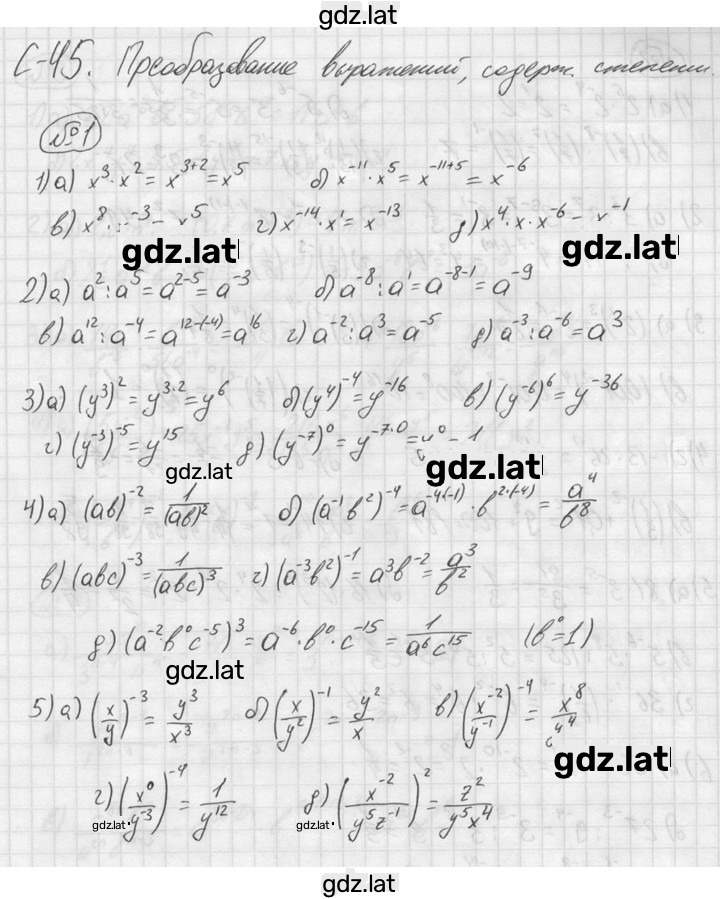 gdz.lat
С-45. Преобразование выражений, содерж. степени.
№1
1) а) x³·x² = x³⁺² = x⁵ б) x⁻¹¹·x⁵ = x⁻¹¹⁺⁵ = x⁻⁶
в) x⁸ : ⁻³ = x⁵ г) x⁻¹⁴·x¹ = x⁻¹³ д) x⁴·x·x⁻⁶ = x⁻¹
gdz.lat gdz.lat
2) а) a² : a⁵ = a²⁻⁵ = a⁻³ б) a⁻⁸ : a¹ = a⁻⁸⁻¹ = a⁻⁹
в) a¹² : a⁻⁴ = a¹²⁻⁽⁻⁴⁾ = a¹⁶ г) a⁻² : a³ = a⁻⁵ д) a⁻³ : a⁻⁶ = a³
3) а) (y³)² = y³·² = y⁶ б) (y⁴)⁻⁴ = y⁻¹⁶ в) (y⁻⁶)⁶ = y⁻³⁶
г) (y⁻³)⁻⁵ = y¹⁵ д) (y⁻⁷)⁰ = y⁻⁷·⁰ = y⁰ = 1
gdz.lat gdz.lat
4) а) (ab)⁻² = 1/(ab)² б) (a⁻¹b²)⁻⁴ = a⁻⁴·⁽⁻¹⁾·b²·⁽⁻⁴⁾ = a⁴/b⁸
в) (abc)⁻³ = 1/(abc)³ г) (a⁻³b²)⁻¹ = a³b⁻² = a³/b²
д) (a⁻²·b⁰c⁻⁵)³ = a⁻⁶·b⁰·c⁻¹⁵ = 1/a⁶c¹⁵ (b⁰=1)
gdz.lat
5) а) (x/y)⁻³ = y³/x³ б) (x/y²)⁻¹ = y²/x в) (x⁻²/y⁻¹)⁻⁴ = x⁸/y⁴
gdz.lat
г) (x⁰/y⁻³)⁻⁴ = 1/y¹² д) (x⁻²/y⁵z⁻¹)² = z²/y⁵x⁴
gdz.lat gdz.lat
gdz.lat